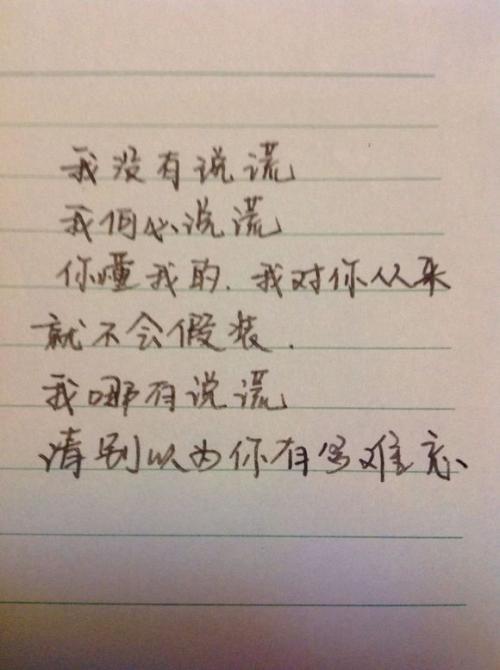 我没有说谎
我何必说谎
你懂我的.我对你从来
就不会假装.
我哪有说谎
请别以为你有多难忘